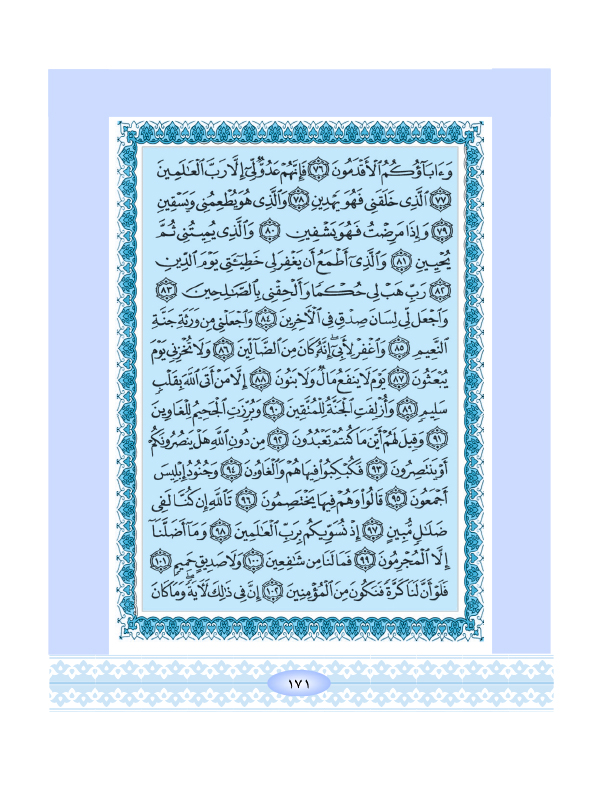 وَءَابَآؤُكُمُ ٱلْأَقْدَمُونَ ﴿٧٦﴾ فَإِنَّهُمْ عَدُوٌّ لِّىٓ إِلَّا رَبَّ ٱلْعَٰلَمِينَ
﴿٧٧﴾ ٱلَّذِى خَلَقَنِى فَهُوَ يَهْدِينِ ﴿٧٨﴾ وَٱلَّذِى هُوَ يُطْعِمُنِى وَيَسْقِينِ
﴿٧٩﴾ وَإِذَا مَرِضْتُ فَهُوَ يَشْفِينِ ﴿٨٠﴾ وَٱلَّذِى يُمِيتُنِى ثُمَّ
يُحْيِينِ ﴿٨١﴾ وَٱلَّذِىٓ أَطْمَعُ أَن يَغْفِرَ لِى خَطِيٓـَٔتِى يَوْمَ ٱلدِّينِ
﴿٨٢﴾ رَبِّ هَبْ لِى حُكْمًا وَأَلْحِقْنِى بِٱلصَّٰلِحِينَ ﴿٨٣﴾
وَٱجْعَل لِّى لِسَانَ صِدْقٍ فِى ٱلْءَاخِرِينَ ﴿٨٤﴾ وَٱجْعَلْنِى مِن وَرَثَةِ جَنَّةِ
ٱلنَّعِيمِ ﴿٨٥﴾ وَٱغْفِرْ لِأَبِىٓ إِنَّهُۥ كَانَ مِنَ ٱلضَّآلِّينَ ﴿٨٦﴾ وَلَا تُخْزِنِى يَوْمَ
يُبْعَثُونَ ﴿٨٧﴾ يَوْمَ لَا يَنفَعُ مَالٌ وَلَا بَنُونَ ﴿٨٨﴾ إِلَّا مَنْ أَتَى ٱللَّهَ بِقَلْبٍ
سَلِيمٍ ﴿٨٩﴾ وَأُزْلِفَتِ ٱلْجَنَّةُ لِلْمُتَّقِينَ ﴿٩٠﴾ وَبُرِّزَتِ ٱلْجَحِيمُ لِلْغَاوِينَ
﴿٩١﴾ وَقِيلَ لَهُمْ أَيْنَ مَا كُنتُمْ تَعْبُدُونَ ﴿٩٢﴾ مِن دُونِ ٱللَّهِ هَلْ يَنصُرُونَكُمْ
أَوْ يَنتَصِرُونَ ﴿٩٣﴾ فَكُبْكِبُوا۟ فِيهَا هُمْ وَٱلْغَاوُۥنَ ﴿٩٤﴾ وَجُنُودُ إِبْلِيسَ
أَجْمَعُونَ ﴿٩٥﴾ قَالُوا۟ وَهُمْ فِيهَا يَخْتَصِمُونَ ﴿٩٦﴾ تَٱللَّهِ إِن كُنَّا لَفِى
ضَلَٰلٍ مُّبِينٍ ﴿٩٧﴾ إِذْ نُسَوِّيكُم بِرَبِّ ٱلْعَٰلَمِينَ ﴿٩٨﴾ وَمَآ أَضَلَّنَآ
إِلَّا ٱلْمُجْرِمُونَ ﴿٩٩﴾ فَمَا لَنَا مِن شَٰفِعِينَ ﴿١٠٠﴾ وَلَا صَدِيقٍ حَمِيمٍ ﴿١٠١﴾
فَلَوْ أَنَّ لَنَا كَرَّةً فَنَكُونَ مِنَ ٱلْمُؤْمِنِينَ ﴿١٠٢﴾ إِنَّ فِى ذَٰلِكَ لَءَايَةً وَمَا كَانَ
١٧١